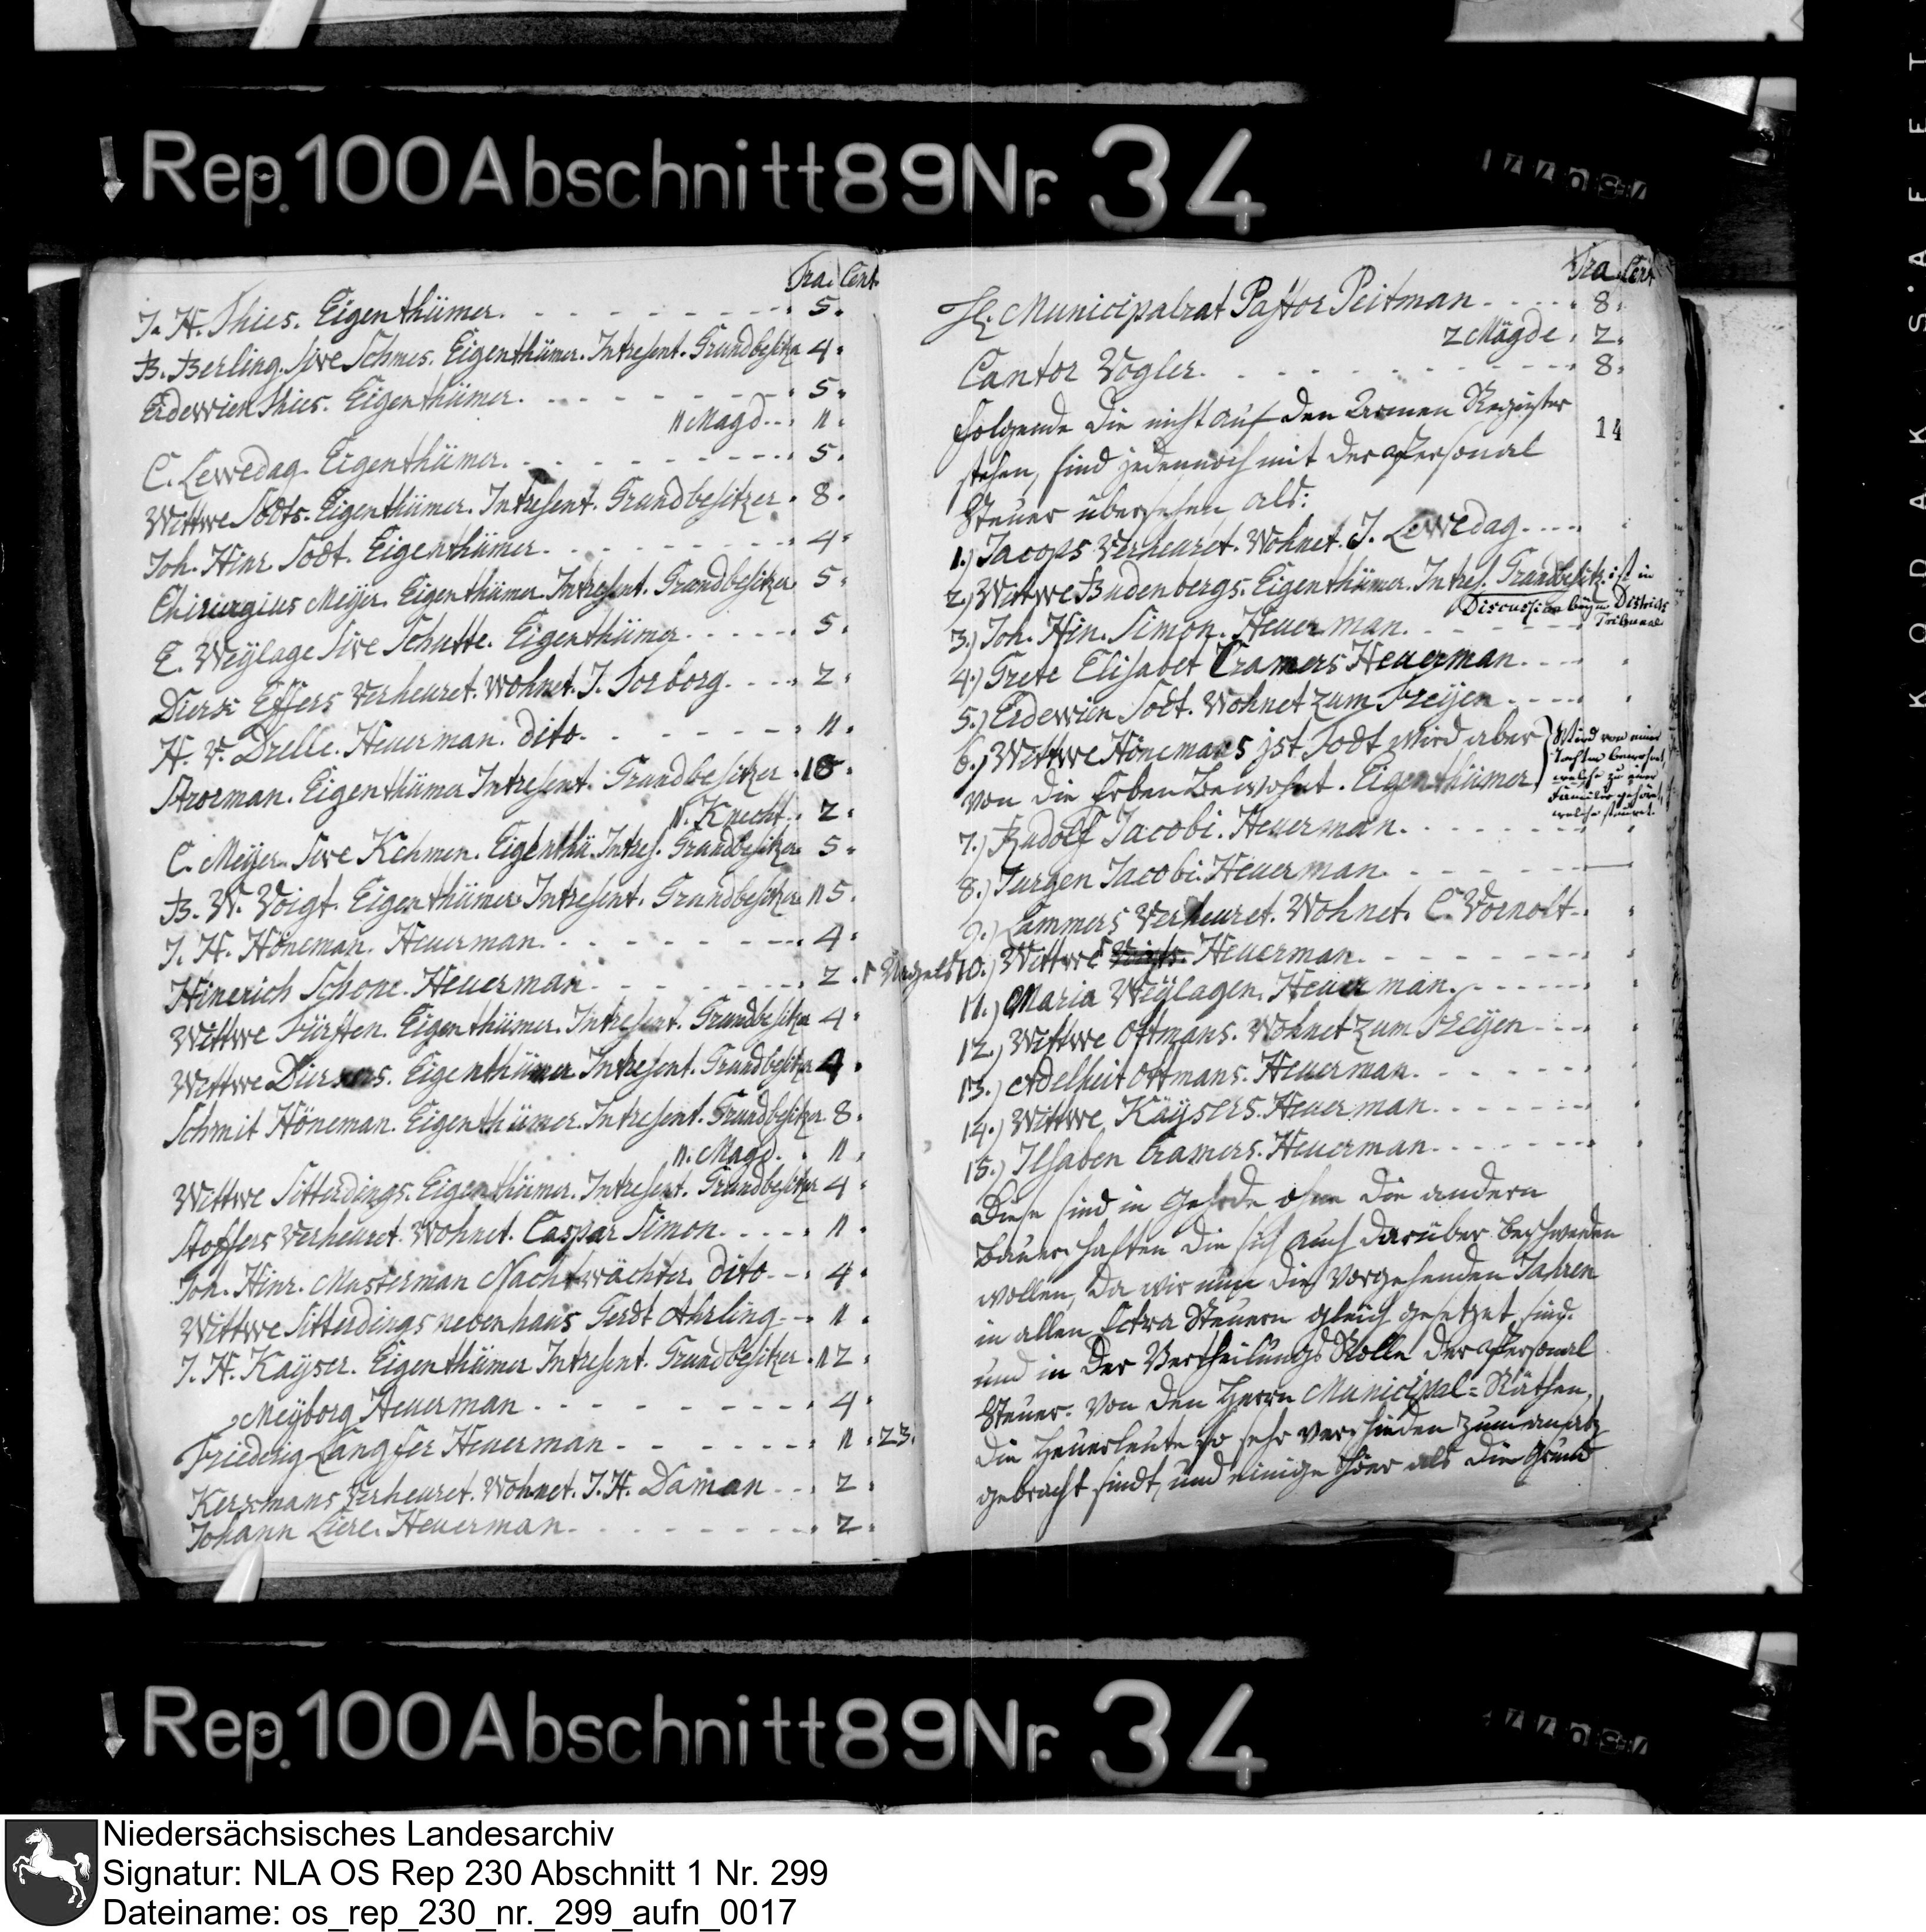 Rep. 100 Abschnitt 89 Nr. 34
Fra. Cent.
J. H. Thies. Eigenthümer. 5.
B. Berling. Sive Schmes. Eigenthümer. Intresent. Grundbesitzer 4.
Erdewien Thies. Eigenthümer. 5.
11 Magd. 11.
C. Lewedag. Eigenthümer. 5.
Wittwe Sodts. Eigenthümer. Intresent. Grundbesitzer. 8.
Joh. Hinr. Sodt. Eigenthümer. 4.
Chirurgius Meÿer. Eigenthümer. Intresent. Grandbesitzer. 5.
E. Weÿlage Sive Schutte. Eigenthümer. 5.
Effers Verheuret. Wohnet. J. Torborg. 2.
H. V. Drelle. Heuerman. dito. 11.
Eigenthümer Intresent. Grundbesitzer.
11. Knecht. 2.
C. Meÿer. Sive Kehmen. Eigenthü. Intres. Grandbesitzer. 5.
B. W. Voigt. Eigenthümer Intresent. Grandbesitzer. 11 5.
J. H. Höneman. Heuerman. 4.
Hinerich Schone. Heuerman. 2.
Wittwe Fürsten. Eigenthümer. Intresent. Grundbesitzer 4.
Wittwe Eigenthümer Intresent. Grundbesitzer 4.
Schmit Höneman. Eigenthümer. Intresent. Grundbesitzer. 8.
11. Magd. 11.
Wittwe Sitterdings. Eigenthümer. Intresent. Grundbesitzer 4.
Stoffers Verheuret. Wohnet. Caspar Simon. 11.
Joh. Hinr. Musterman Nachtwächter. dito 4.
Wittwe Sitterdings nebenhaus Gerdt Ahrling 11.
J. H. Kaÿser. Eigenthümer Intresent. Grundbesitzer. 12.
Meÿborg Heuerman 4.
Friederig Langfer Heuerman 11. 23.
Kersmans Verheuret. Wohnet. J. H. Daman 2.
Johann Liere. Heuerman. 2.
Fra. Cent
H. Municipalrat Pastor Peitman 8.
2 Mägde. 2.
Cantor Vogler. 8.
folgende die nicht auf den Armen Register
14
stehen, sind jedennoch mit der Personal
Steuer übersehen als:
1.) Jacops Verheuret. Wohnet. J. Lewedag
2.) Wittwe Budenbergs. Eigenthümer. Intres. Grandbesitz. ist in
Discussion beÿm Districts
Tribunal
3.) Joh. Hin. Simon. Heuerman.
4.) Grete Elisabet Cramers Heuerman.
5.) Erdewien Sodt. Wohnet zum Freÿen
6.) Wittwe Hönemans jst Todt wird aber
von die Erben Bewohnt. Eigenthümer.
Wird von einer
Tochter bewohnt,
welche zu einer
Familie gehört,
welche steuret.
7.) Rudolf Jacobi. Heuerman.
8.) Jurgen Jacobi. Heuerman.
9.) Lammers Verheuret. Wohnet. C. Vornolt.
10.) Wittwe Heuerman.
11.) Maria Weÿlagen. Heuerman.
12.) Wittwe Ottmans. Wohnet zum Freÿen
13.) Adelheit Ottmans. Heuerman.
14.) Wittwe Käÿsers. Heuerman.
15.) Ilsaben Cramers. Heuerman.
Diese sind in Gehrde ohne die andern
Bauerschaften die sich auch darüber beschweren
wollen, da wir nun die vorgehenden Jahren
in allen Extra Steuern gleich gesetzet sind.
und in der Vertheilungs Rolle der Personal
Steuer. von den Herrn Municipal=Räthen.
die Heuerleute so sehr verschieden zum ansatz
gebracht sindt, und einige höer als die Grund
Rep. 100 Abschnitt 89 Nr. 34
KODAK SAFETY
Niedersächsisches Landesarchiv
Signatur: NLA OS Rep 230 Abschnitt 1 Nr. 299
Dateiname: os_rep_230_nr._299_aufn_0017